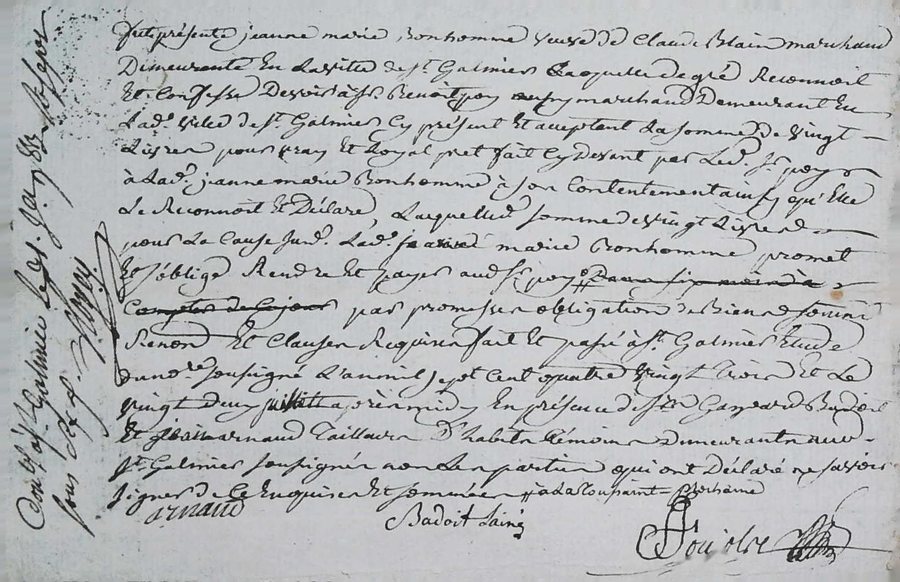 fut présente jeanne marie Bonhomme veuve de Claude Blain marchand
Demeurante En La ville de St. Galmier Laquelle de gré Reconnoit
Et Confesse Devoir à Sr. Benoit poy marchand Demeurant En
Lad. ville de St. Galmier Cy présent Et acceptant La somme de vingt
Livres pour vray Et Loyal pret fait Cy Devant par Led. Sr. poy
à Lad. jeanne marie Bonhomme à son Contentement ainsy qu'Elle
Le Reconnoit Et Déclare, Laquelle d. somme de vingt Livres
pour La Cause Susd. Lad. jeanne marie Bonhomme promet
Et s'oblige Rendre Et payer aud. Sr. poy dans six mois à
Compter de Ce jour par promesse obligation de Biens soumis
Renon Et Clauses Requises fait Et passé à St. Galmier Etude
du nore. soussigné L'an mil sept Cent quatre vingt trois Et Le
vingt deux juillet après midy En présence de Sr. Gaspard Badoit
Et arnaud tailleur D'habits témoins Demeurants aud.
St. Galmier soussignés non Les parties qui ont Déclaré ne savoir
signer de Ce Enquises Et sommées à la toussaint prochaine
arnaud
Badoit Lainé
Conllé à St. Galmier Le